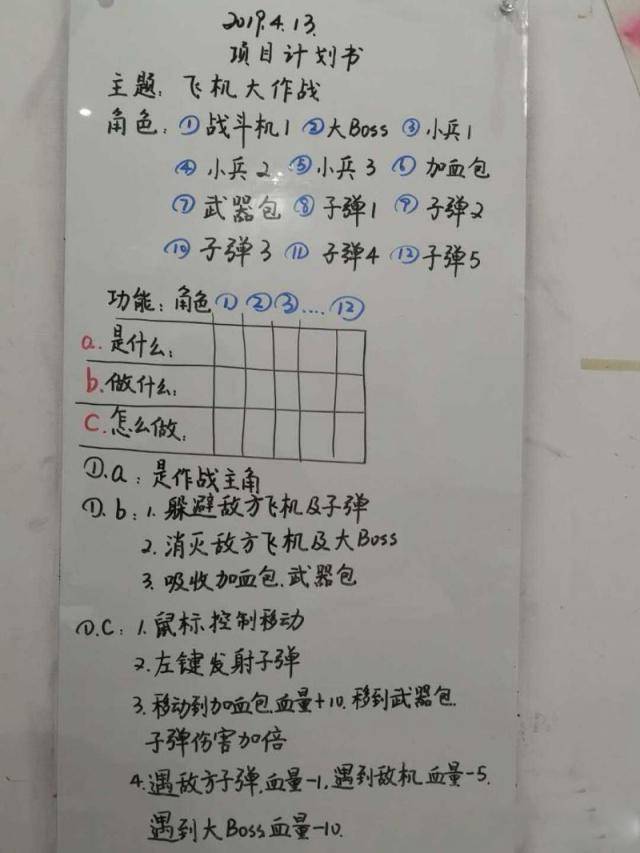 2019.4.13.
项目计划书
主题：飞机大作战
角色：①战斗机1 ②大Boss ③小兵1
④小兵2 ⑤小兵3 ⑥加血包
⑦武器包 ⑧子弹1 ⑨子弹2
⑩子弹3 ⑪子弹4 ⑫子弹5
功能：角色① ② ③.... ⑫
a.是什么：
b.做什么：
C.怎么做：
①.a：是作战主角
①.b：1.躲避敌方飞机及子弹
2.消灭敌方飞机及大Boss
3.吸收加血包.武器包
①.C：1.鼠标控制移动
2.左键发射子弹
3.移动到加血包.血量+10.移到武器包.
子弹伤害加倍
4.遇敌方子弹.血量-1.遇到敌机血量-5.
遇到大Boss血量-10.